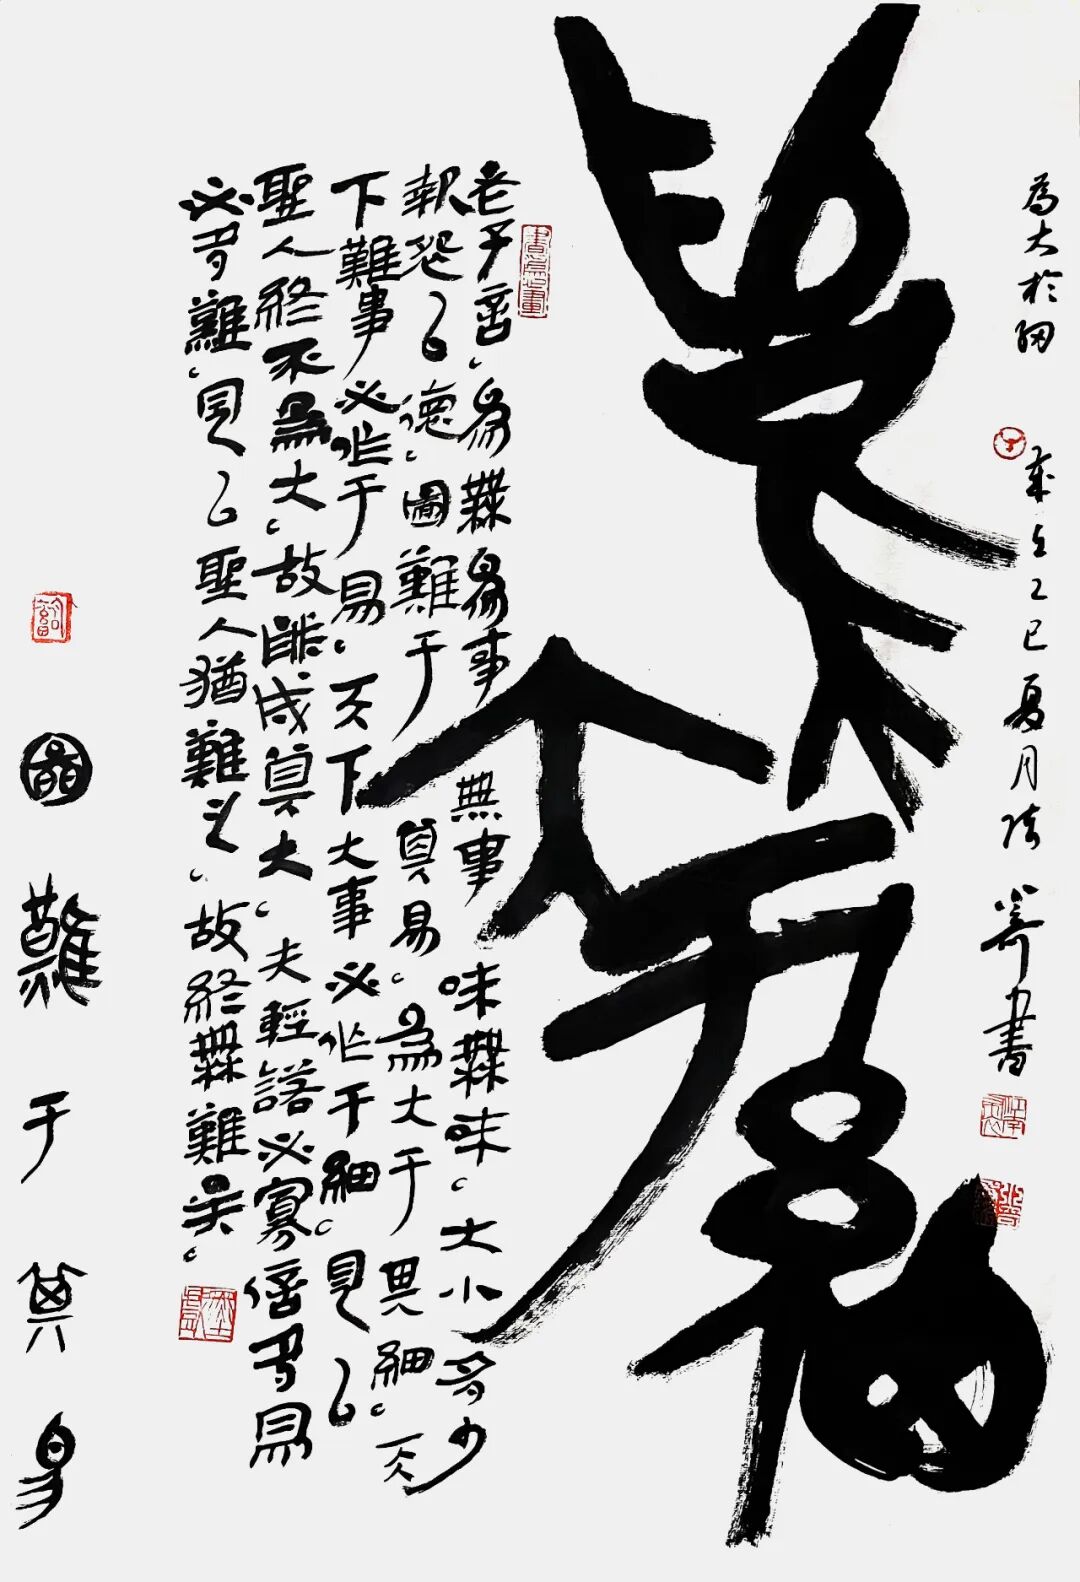 為大於細
歲在乙巳夏月 書
為大于細
老子言。為無為事無事味無味。大小多少
報怨以德。圖難于其易。為大于其細。天
下難事必作于易。天下大事必作于細。是以
聖人終不為大。故能成其大。夫輕諾必寡信多易
必多難。是以聖人猶難之。故終無難矣。
圖難于其易